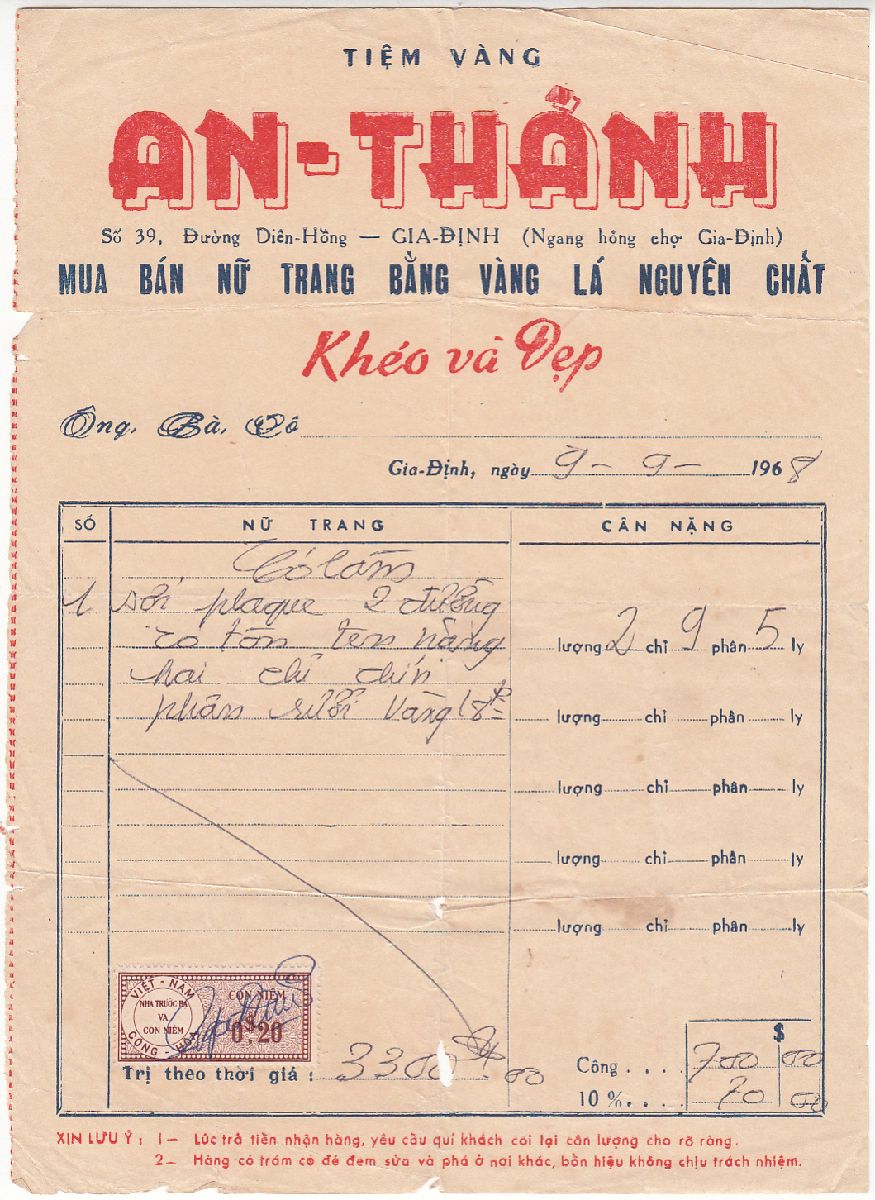 TIỆM VÀNG
AN-THÀNH
Số 39, Đường Diên-Hồng — GIA-ĐỊNH (Ngang hông chợ Gia-Định)
MUA BÁN NỮ TRANG BẰNG VÀNG LÁ NGUYÊN CHẤT
Khéo và Đẹp
Ông, Bà, Cô
Gia-Định, ngày 9 - 9 - 1968
SỐ NỮ TRANG CÂN NẶNG
Có lắm
1 sợi plaque 2 đường
có tòn ten nặng lượng 2 chỉ 9 phân 5 ly
hai chỉ chín
phân rưỡi vàng 18 lượng chỉ phân ly
lượng chỉ phân ly
lượng chỉ phân ly
lượng chỉ phân ly
VIỆT-NAM CỘNG-HÒA
NHA TRƯỚC BẠ VÀ CON NIÊM
CON NIÊM
0$20
Trị theo thời giá : 3300$00
$
Công . . . . 700 00
10 %. . . . 70 00
XIN LƯU Ý : 1— Lúc trả tiền nhận hàng, yêu cầu quí khách coi lại cân lượng cho rõ ràng.
2— Hàng có trám có đé đem sửa và phá ở nơi khác, bổn hiệu không chịu trách nhiệm.